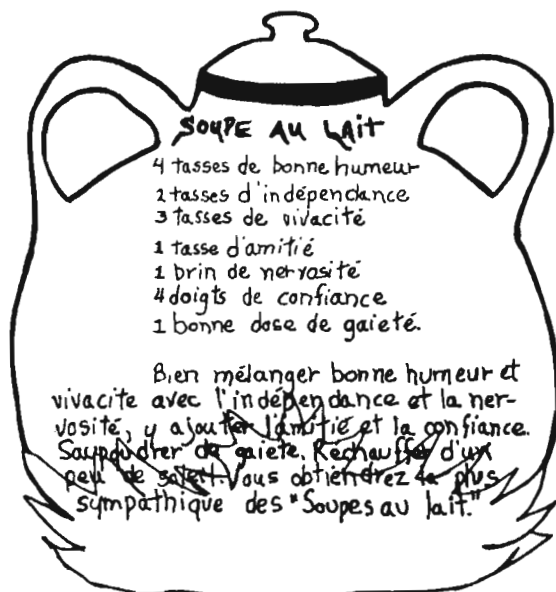 SOUPE AU LAIT
4 tasses de bonne humeur
2 tasses d'indépendance
3 tasses de vivacité
1 tasse d'amitié
1 brin de nervosité
4 doigts de confiance
1 bonne dose de gaieté.
Bien mélanger bonne humeur et
vivacite avec l'indépendance et la ner-
vosité, y ajouter l'amitié et la confiance.
Saupoudrer de gaiete. Réchauffer d'un
peu de soleil. Vous obtiendrez le plus
sympathique des "Soupes au lait."